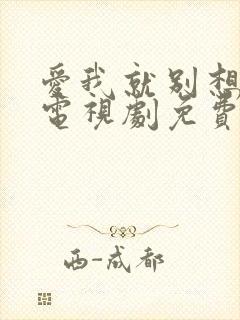 愛我就別想
電視劇免費
西-成都